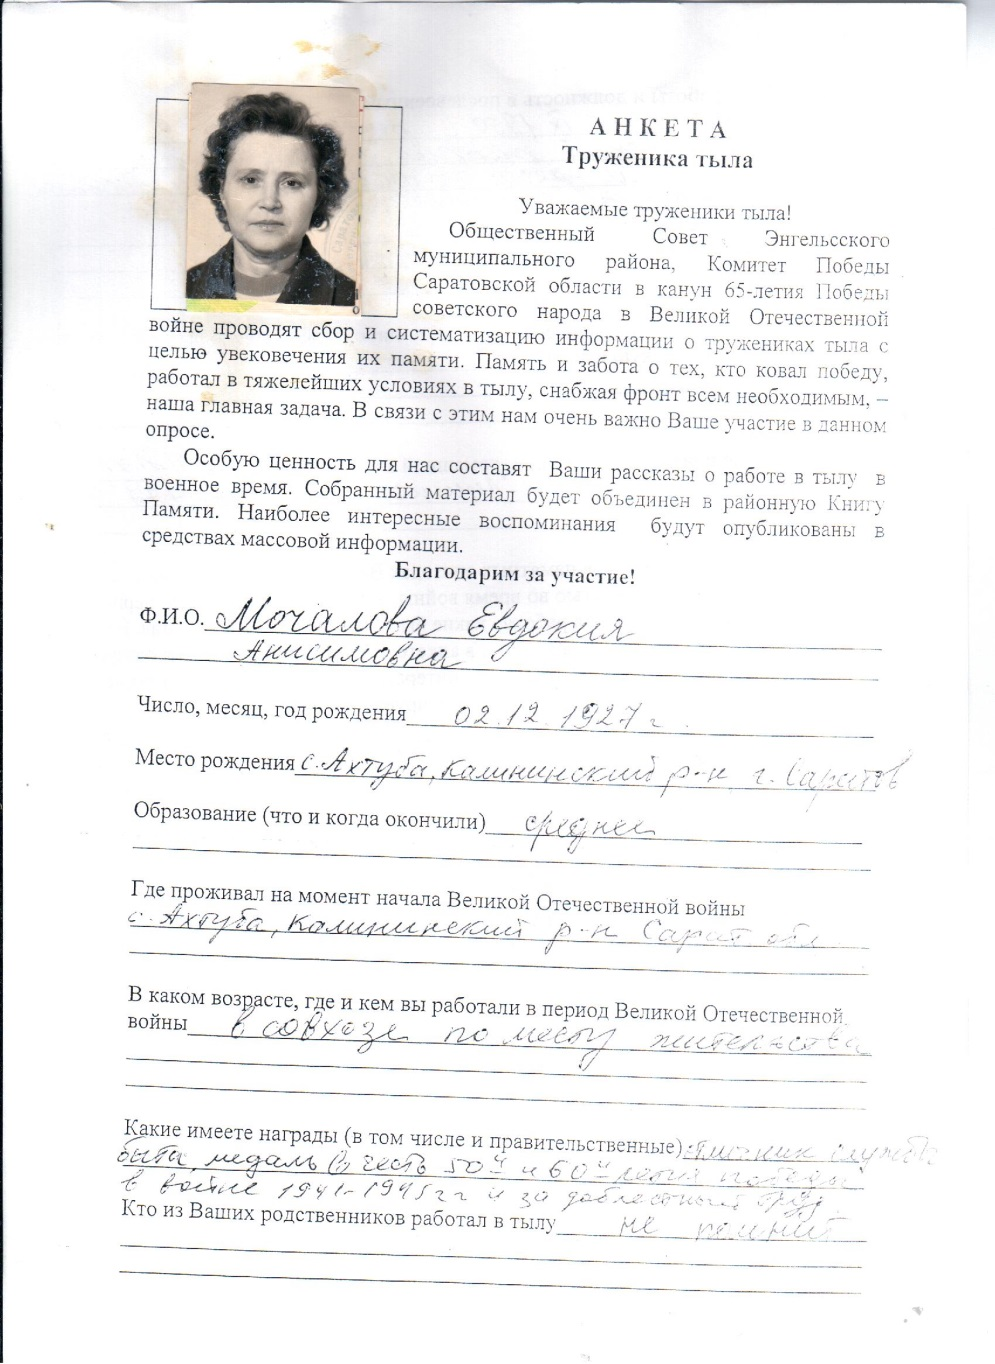 АНКЕТА
Труженика тыла
Уважаемые труженики тыла!
Общественный Совет Энгельсского
муниципального района, Комитет Победы
Саратовской области в канун 65-летия Победы
советского народа в Великой Отечественной
войне проводят сбор и систематизацию информации о тружениках тыла с
целью увековечения их памяти. Память и забота о тех, кто ковал победу,
работал в тяжелейших условиях в тылу, снабжая фронт всем необходимым, –
наша главная задача. В связи с этим нам очень важно Ваше участие в данном
опросе.
Особую ценность для нас составят Ваши рассказы о работе в тылу в
военное время. Собранный материал будет объединен в районную Книгу
Памяти. Наиболее интересные воспоминания будут опубликованы в
средствах массовой информации.
Благодарим за участие!
Ф.И.О. Мочалова Евдокия
Анисимовна
Число, месяц, год рождения 02.12.1927 г.
Место рождения с. Ахтуба, Калининский р-н г. Саратов
Образование (что и когда окончили) среднее
Где проживал на момент начала Великой Отечественной войны
с. Ахтуба, Калининский р-н Сарат обл
В каком возрасте, где и кем вы работали в период Великой Отечественной
войны в совхозе по месту жительства
Какие имеете награды (в том числе и правительственные) отличник службы
быта, медаль в честь 50и и 60и летия победы
в войне 1941-1945 гг и за доблестный труд.
Кто из Ваших родственников работал в тылу не помнит